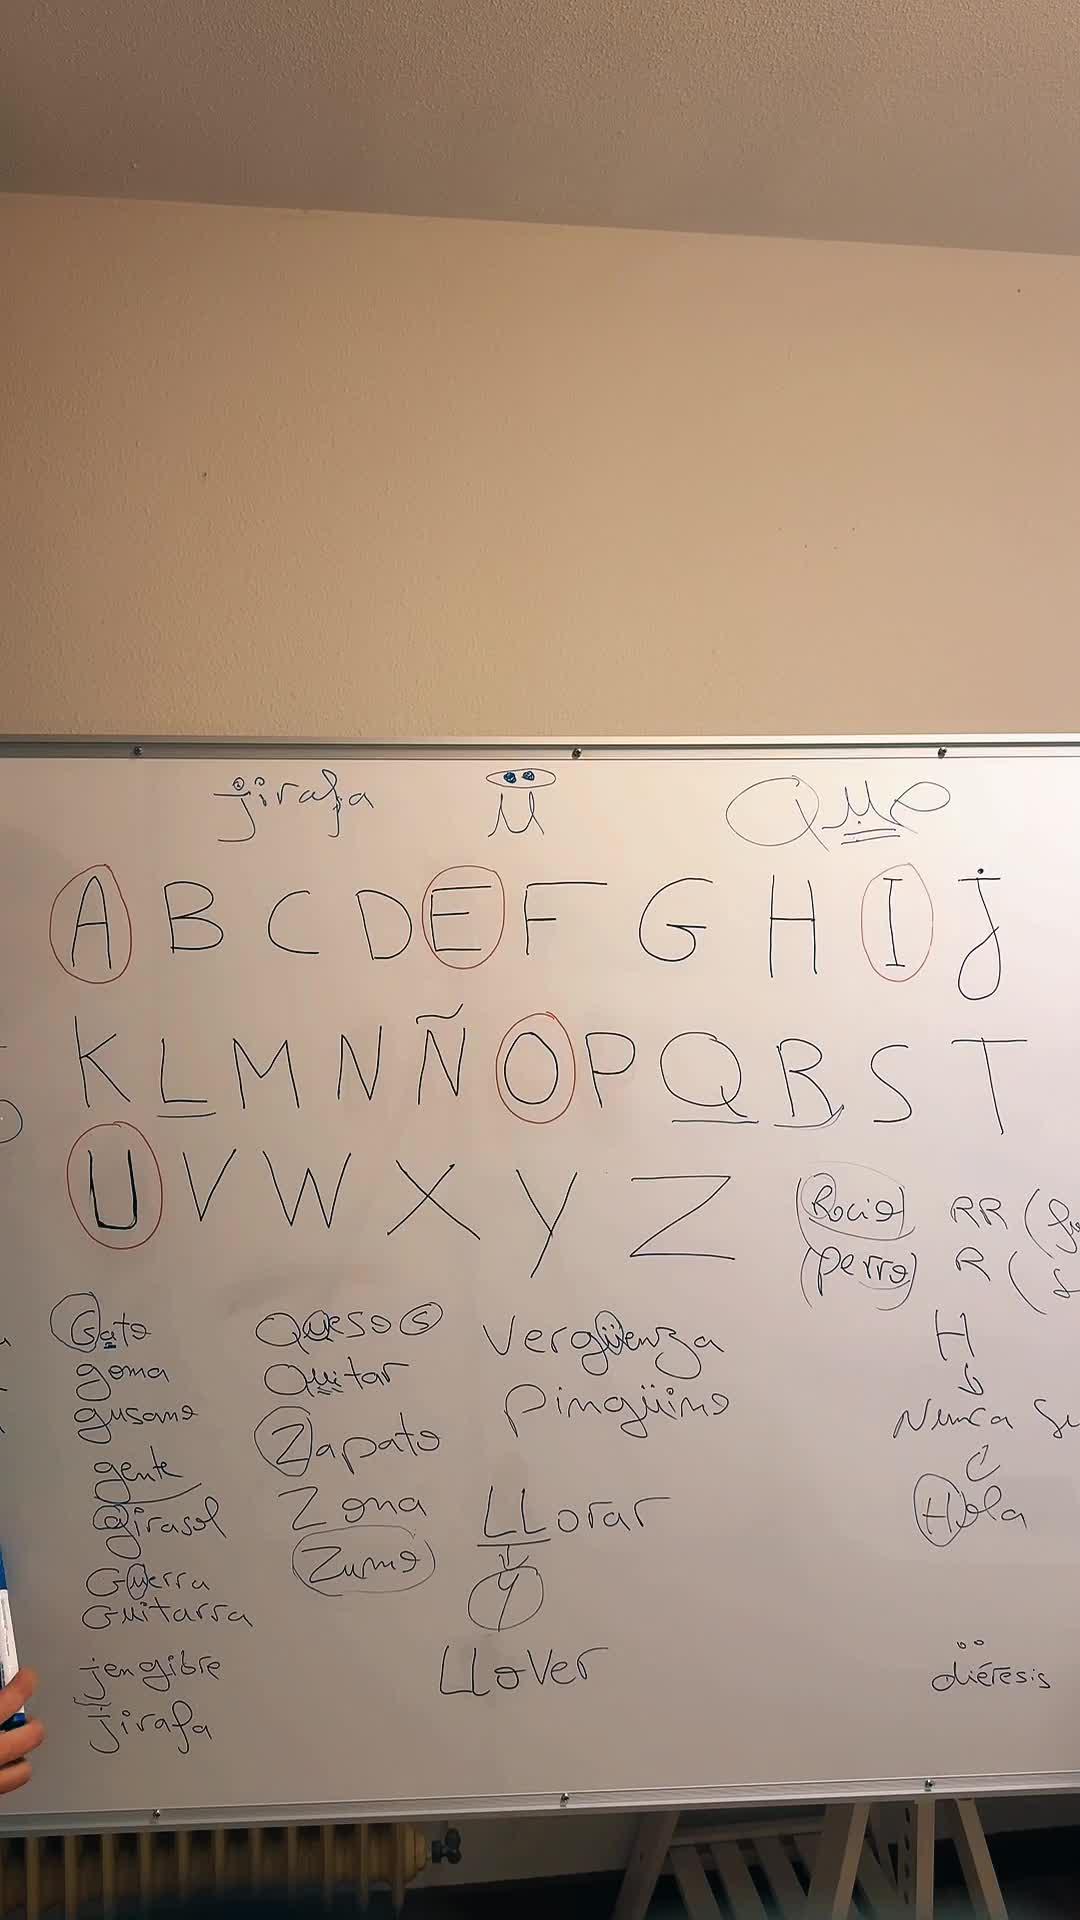 jirafa Ü Que
A B C D E F G H I J
K L M N Ñ O P Q R S T
U V W X Y Z
(Rocio) RR (
(perro) R (
Gato
goma
gusano
gente
Girasol
Guerra
Guitarra
jengibre
jirafa
Queso S
Quitar
Zapato
Zona
Zumo
Vergüenza
Pingüino
LLorar
Y
LLover
H
Nunca
Hola
diéresis